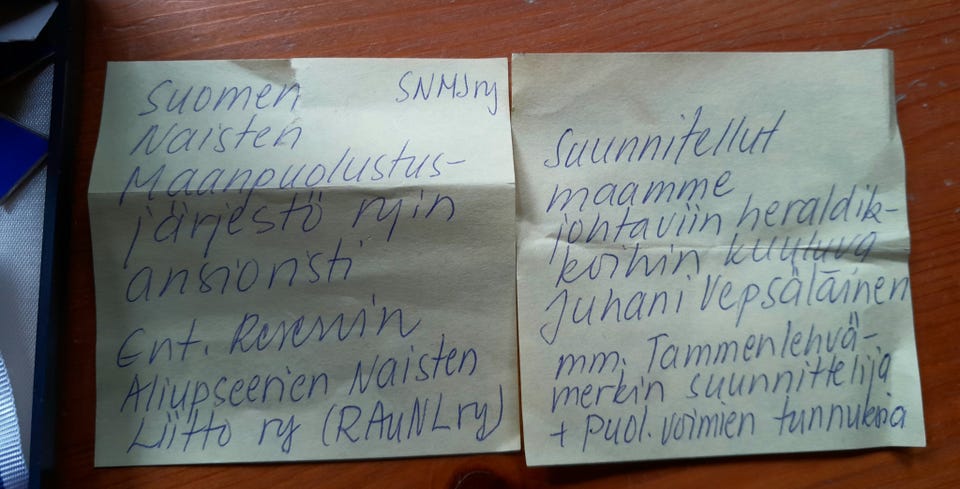 Suomen
SNMJry
Naisten
Maanpuolustus-
järjestö ry:n
ansioristi
Ent. Reservin
Aliupseerien Naisten
Liitto ry (RAuNLry)
Suunnitellut
maamme
johtaviin heraldik-
koihin kuuluva
Juhani Vepsäläinen
mm. Tammenlehvä-
merkin suunnittelija
+ Puol.voimien tunnuksia